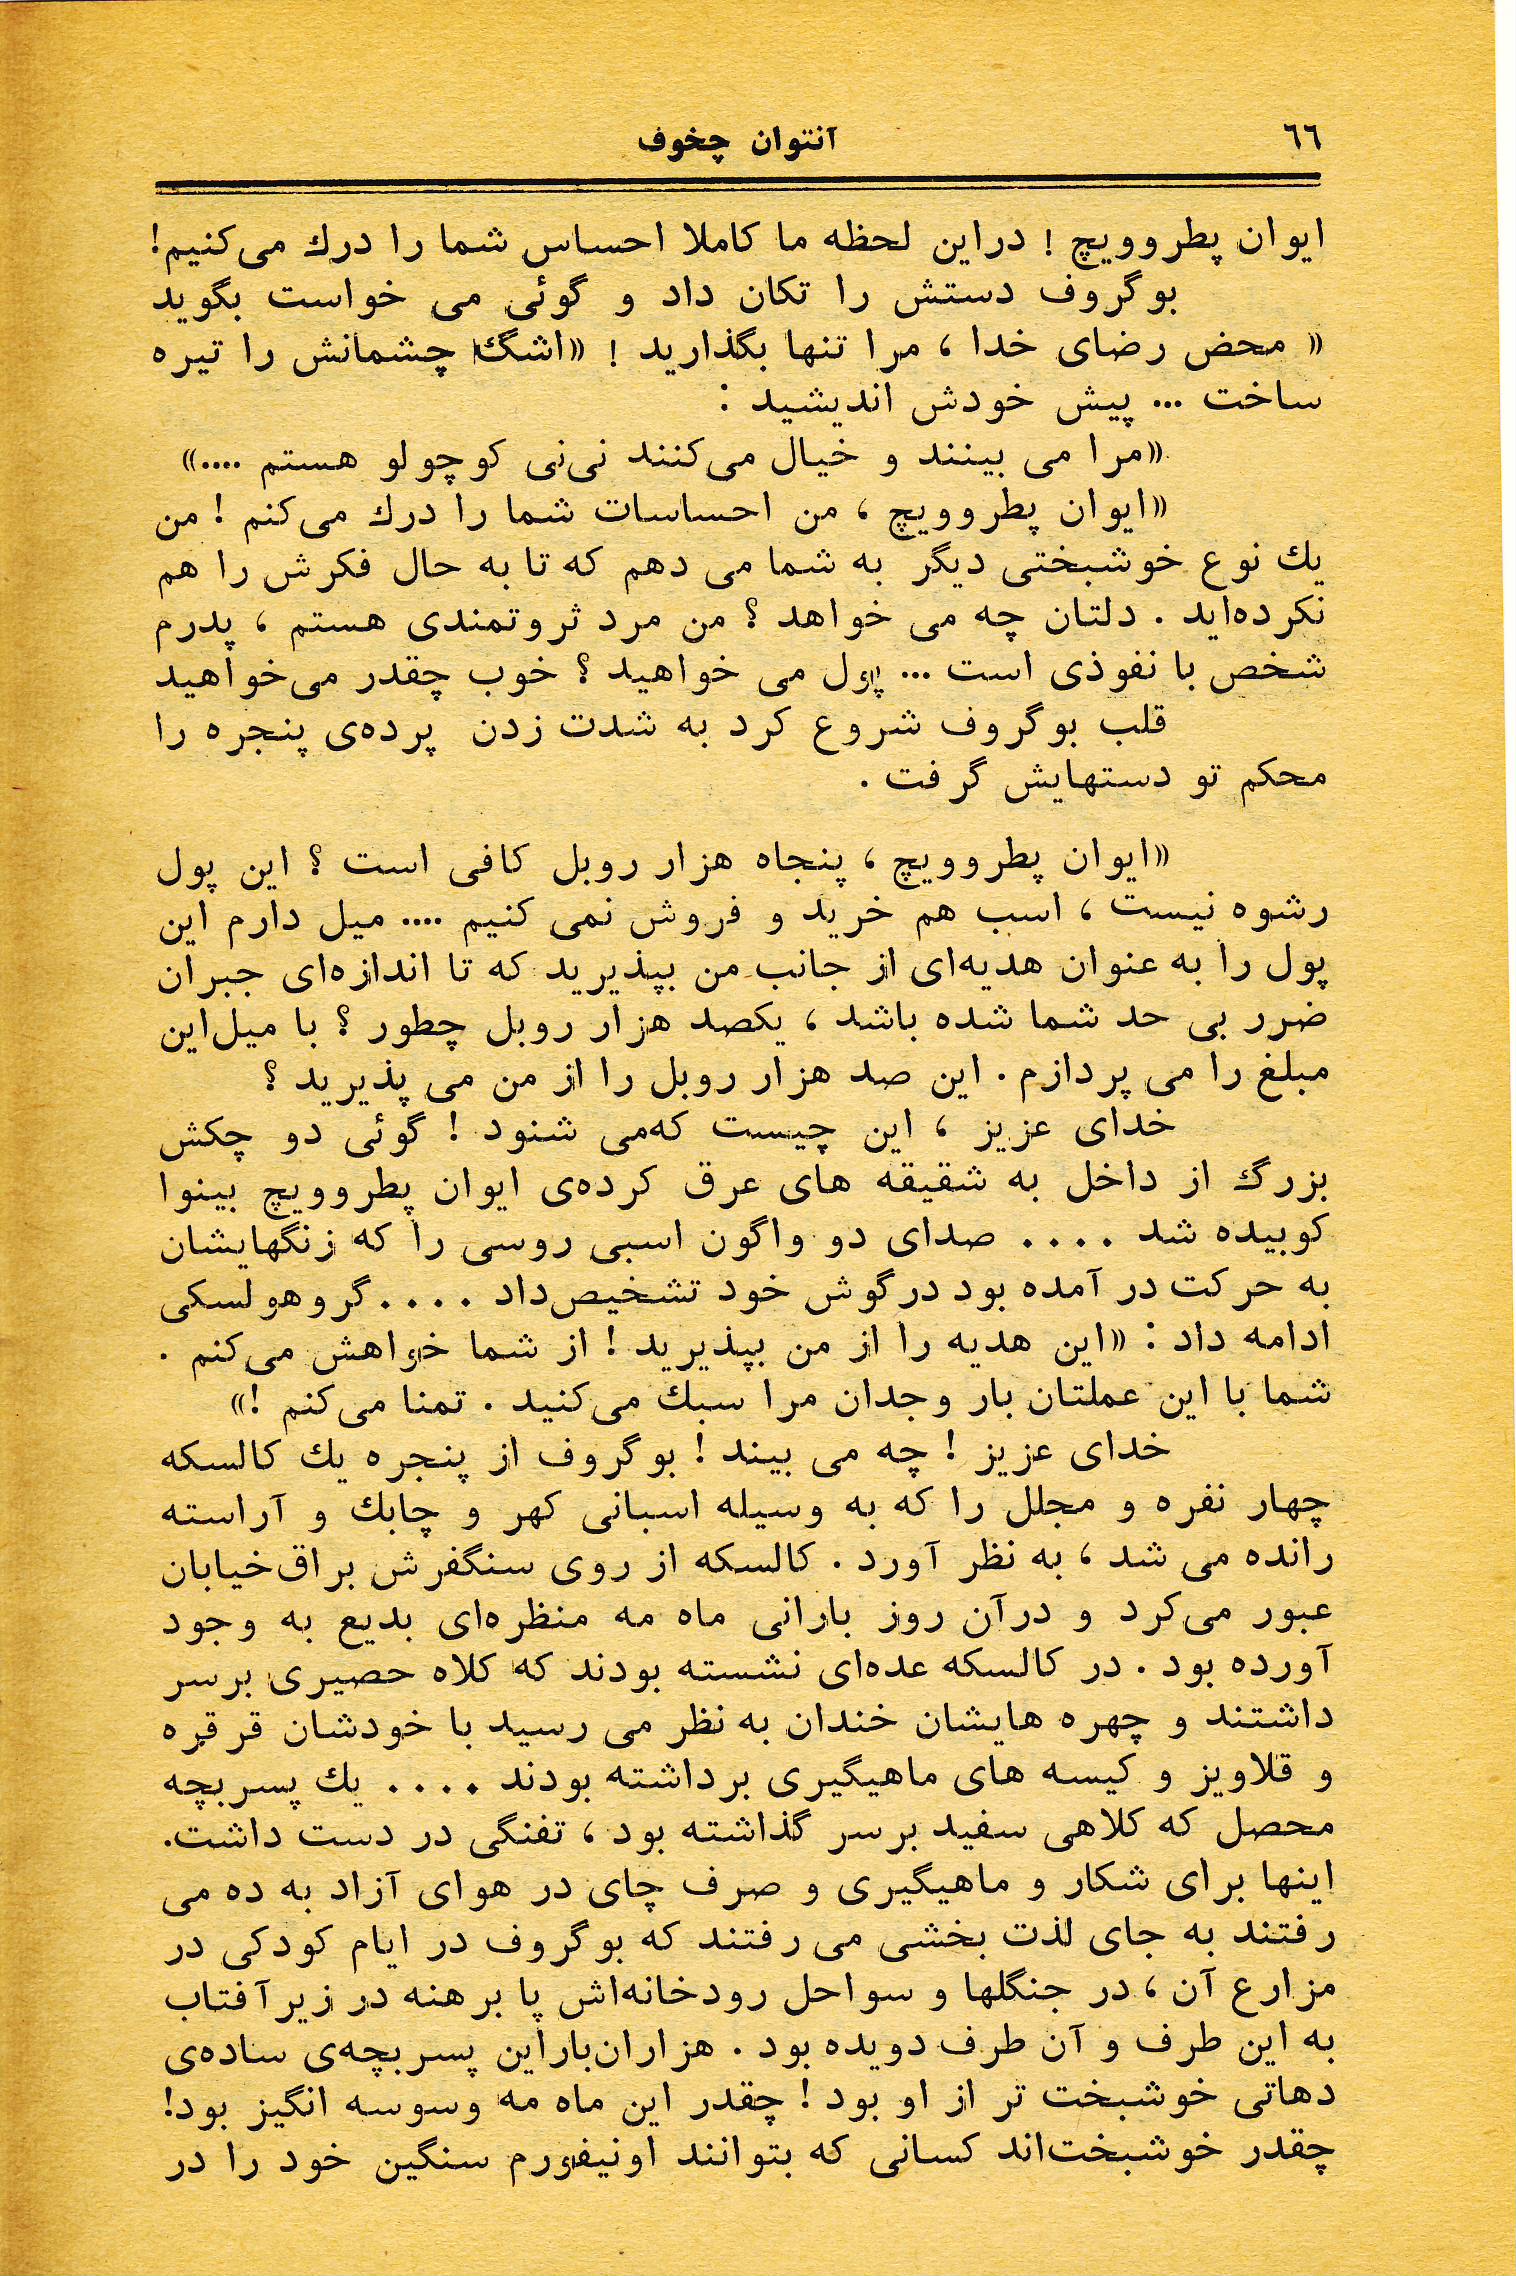 ٦٦
آنتوان چخوف
ایوان پطروویچ ! دراین لحظه ما کاملا احساس شما را درك می‌کنیم!
بوگروف دستش را تکان داد و گوئی می خواست بگوید
« محض رضای خدا ، مرا تنها بگذارید ! «اشگ چشمانش را تیره
ساخت ... پیش خودش اندیشید :
«مرا می بینند و خیال می‌کنند نی‌نی کوچولو هستم ....»
«ایوان پطروویچ ، من احساسات شما را درك می‌کنم ! من
یك نوع خوشبختی دیگر به شما می دهم که تا به حال فکرش را هم
نکرده‌اید . دلتان چه می خواهد ؟ من مرد ثروتمندی هستم ، پدرم
شخص با نفوذی است ... پول می خواهید ؟ خوب چقدر می‌خواهید
قلب بوگروف شروع کرد به شدت زدن پرده‌ی پنجره را
محکم تو دستهایش گرفت .
«ایوان پطروویچ ، پنجاه هزار روبل کافی است ؟ این پول
رشوه نیست ، اسب هم خرید و فروش نمی کنیم .... میل دارم این
پول را به عنوان هدیه‌ای از جانب من بپذیرید که تا اندازه‌ای جبران
ضرر بی حد شما شده باشد ، یکصد هزار روبل چطور ؟ با میل‌این
مبلغ را می پردازم . این صد هزار روبل را از من می پذیرید ؟
خدای عزیز ، این چیست که‌می شنود ! گوئی دو چکش
بزرگ از داخل به شقیقه های عرق کرده‌ی ایوان پطروویچ بینوا
کوبیده شد .... صدای دو واگون اسبی روسی را که زنگهایشان
به حرکت در آمده بود درگوش خود تشخیص‌داد .... گروهولسکی
ادامه داد : «این هدیه را از من بپذیرید ! از شما خواهش می‌کنم .
شما با این عملتان بار وجدان مرا سبك می‌کنید . تمنا می‌کنم !»
خدای عزیز ! چه می بیند ! بوگروف از پنجره یك کالسکه
چهار نفره و مجلل را که به وسیله اسبانی کهر و چابك و آراسته
رانده می شد ، به نظر آورد . کالسکه از روی سنگفرش براق‌خیابان
عبور می‌کرد و درآن روز بارانی ماه مه منظره‌ای بدیع به وجود
آورده بود . در کالسکه عده‌ای نشسته بودند که کلاه حصیری برسر
داشتند و چهره هایشان خندان به نظر می رسید با خودشان قرقره
و قلاویز و کیسه های ماهیگیری برداشته بودند .... یك پسربچه
محصل که کلاهی سفید برسر گذاشته بود ، تفنگی در دست داشت.
اینها برای شکار و ماهیگیری و صرف چای در هوای آزاد به ده می
رفتند به جای لذت بخشی می رفتند که بوگروف در ایام کودکی در
مزارع آن ، در جنگلها و سواحل رودخانه‌اش پا برهنه در زیرآفتاب
به این طرف و آن طرف دویده بود . هزاران‌باراین پسربچه‌ی ساده‌ی
دهاتی خوشبخت تر از او بود ! چقدر این ماه مه وسوسه انگیز بود!
چقدر خوشبخت‌اند کسانی که بتوانند اونیفورم سنگین خود را در